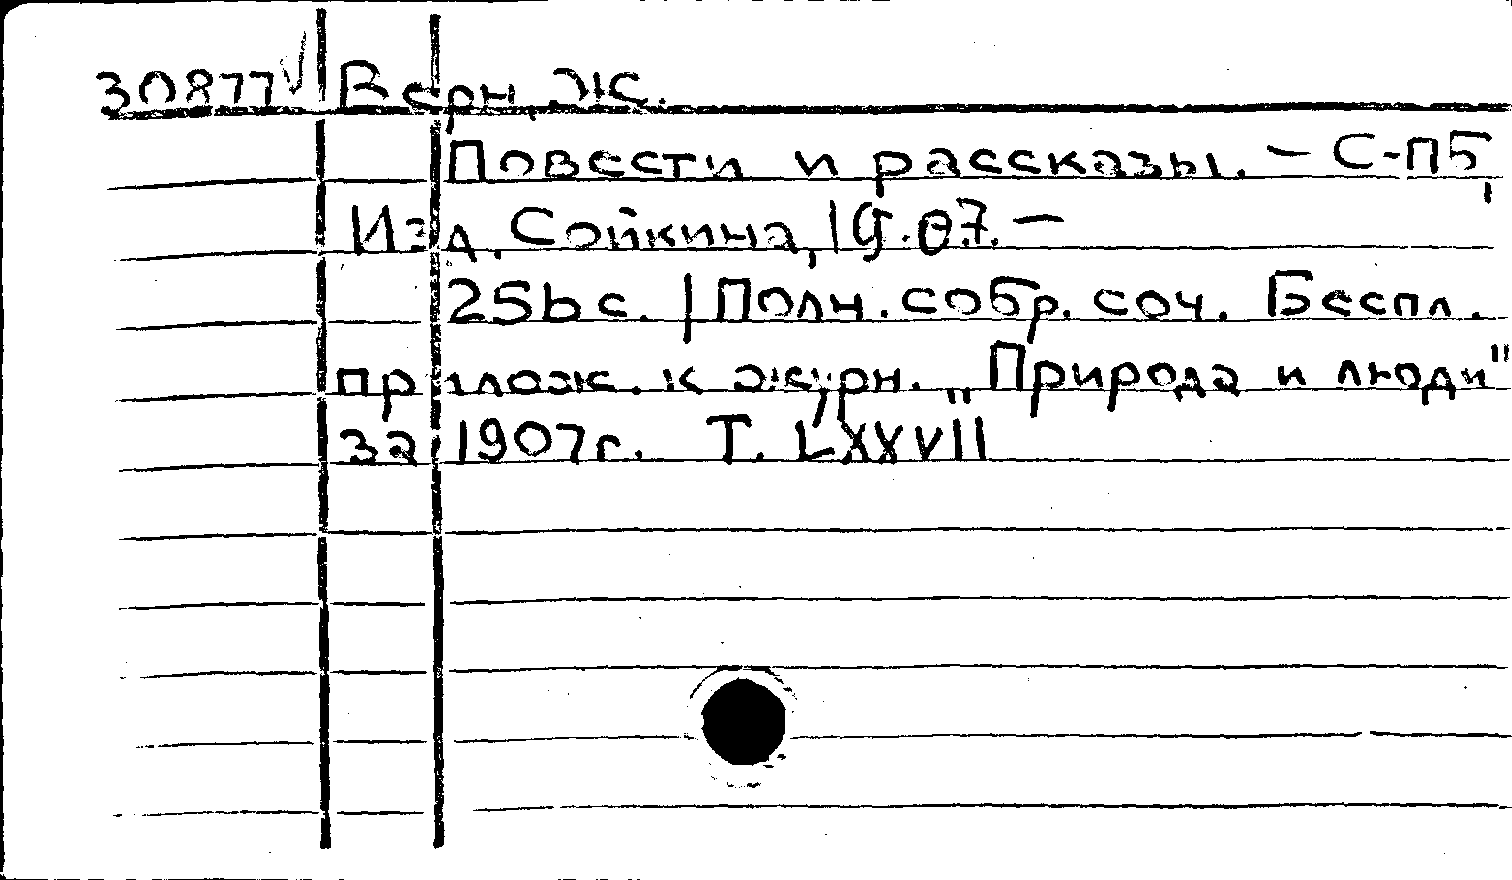 30877 Верн, Ж.
Повести и рассказы. – С-ПБ,
Изд. Сойкина, 1907. –
256 с. | Полн. собр. соч. Беспл.
прилож. к журн. „Природа и люди"
за 1907г. Т. LXXVII